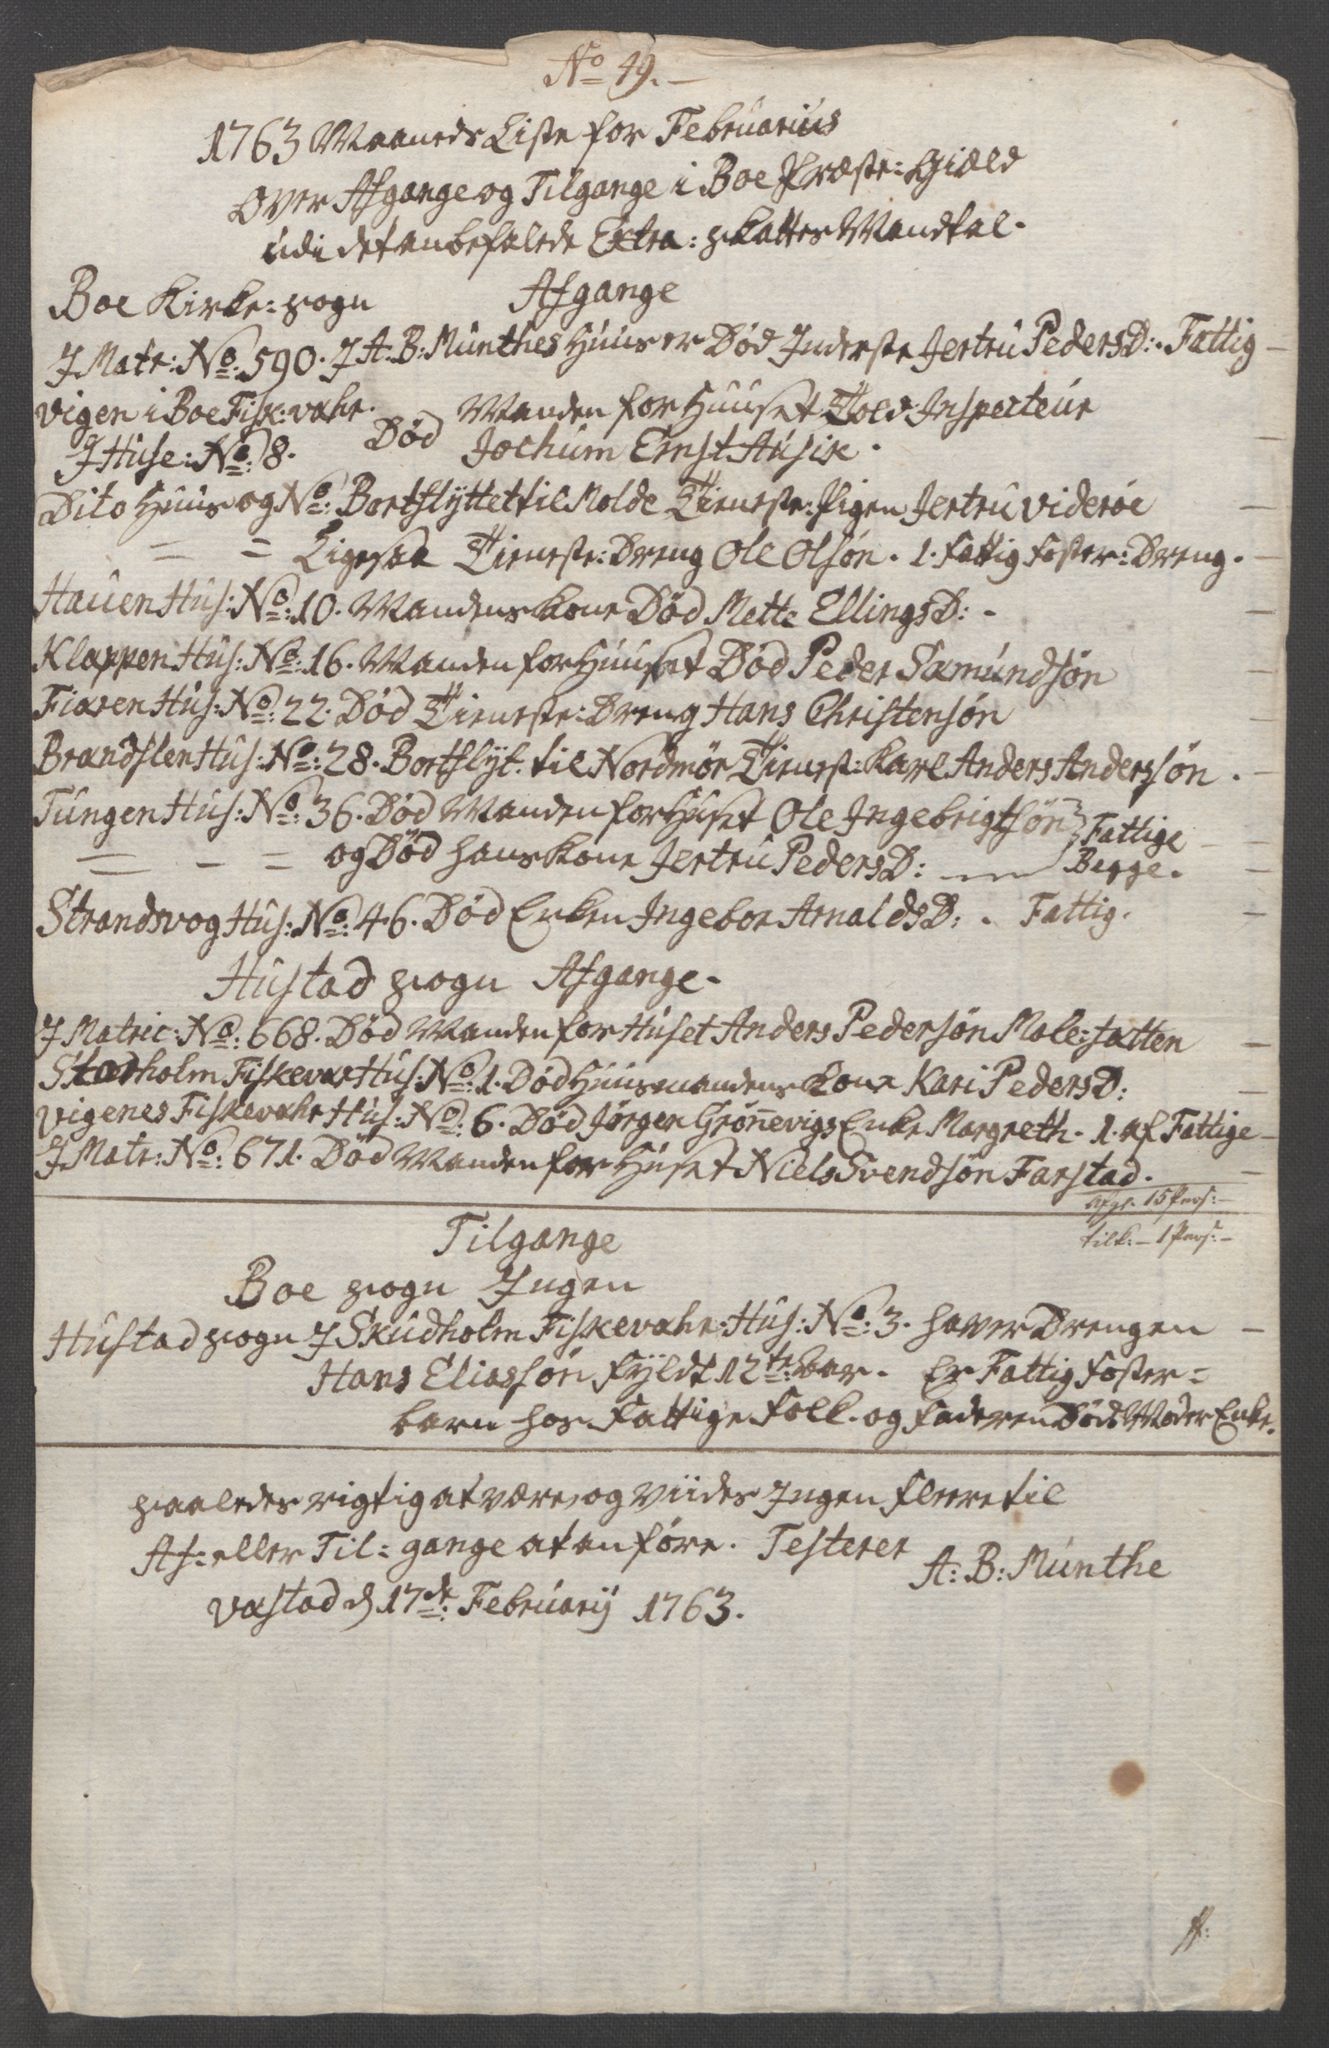 No 49.
1763 Maaneds Liste for Februarius
Over Afgange og Tilgange i Boe Præste: Gield
udi det anbefalede Extra: skattes Mandtal.
Boe Kirke: sogn Afgange
J Matr: No: 590. J A. B: Munthes Huus er Død Inderste Jertru PedersD:. Fattig
Vigen i Boe Fisk: vahr. Manden for Huuset Told: Inspecteur
J Huse: No: 8. Død Jochum Ernst Ausie.
Dito Huus og No: Bortflyttet til Molde Tieneste: Pigen Jertru Viderøe
= = Ligesaa Tieneste: Dreng Ole Olsøn. 1. fattig foster: Dreng.
Hauen Hus: No: 10. Mandens Kone Død Mette EllingsD:
Klappen Hus: No: 16. Manden for Huuset Død Peder Samundsøn
Fiaren Hus: No: 22. Død Tieneste: Dreng Hans Christensøn
Brandslen Hus: No: 28. Bortflyt. til Nordmør Tienest: Karl Anders Anderssøn.
Tungen Hus: No: 36. Død Manden for Huset Ole Ingebrigtsøn } Fattige
= - = og Død hans Kone Jertru PedersD: Begge.
Strandsvog Hus: No: 46. Død Enken Ingebor ArnaldsD: . Fattig.
Hustad sogn Afgange.
J Matric: No: 668. Død Manden for Huset Anders Pedersøn Male: satten
holm Fiskevær Hus: No: 1. Død Huusmandens Kone Kari PedersD:
Vigenes Fiskevahr Hus: No: 6. Død Jørgen Grønnevigs Enke Margreth. 1. af Fattige
J Matr: No: 671. Død Manden for Huset Niels Svendsøn Farstad.
afg. 15 Pers:
tilk: 1 Pers:
Tilgange
Boe sogn Ingen
Hustad sogn J Skudholm Fiskevahr: Hus: No: 3. haver Drengen
Hans Eliassøn fyldt 12te aar. Er Fattig foster=
barn hos Fattige folk. og Faderen Død: Moder Enke.
saaledes rigtig at være, og viides Ingen fleere til
Af: eller Til: gange at anføre. Testerer
A: B: Munthe
Vastad d 17de: February 1763.